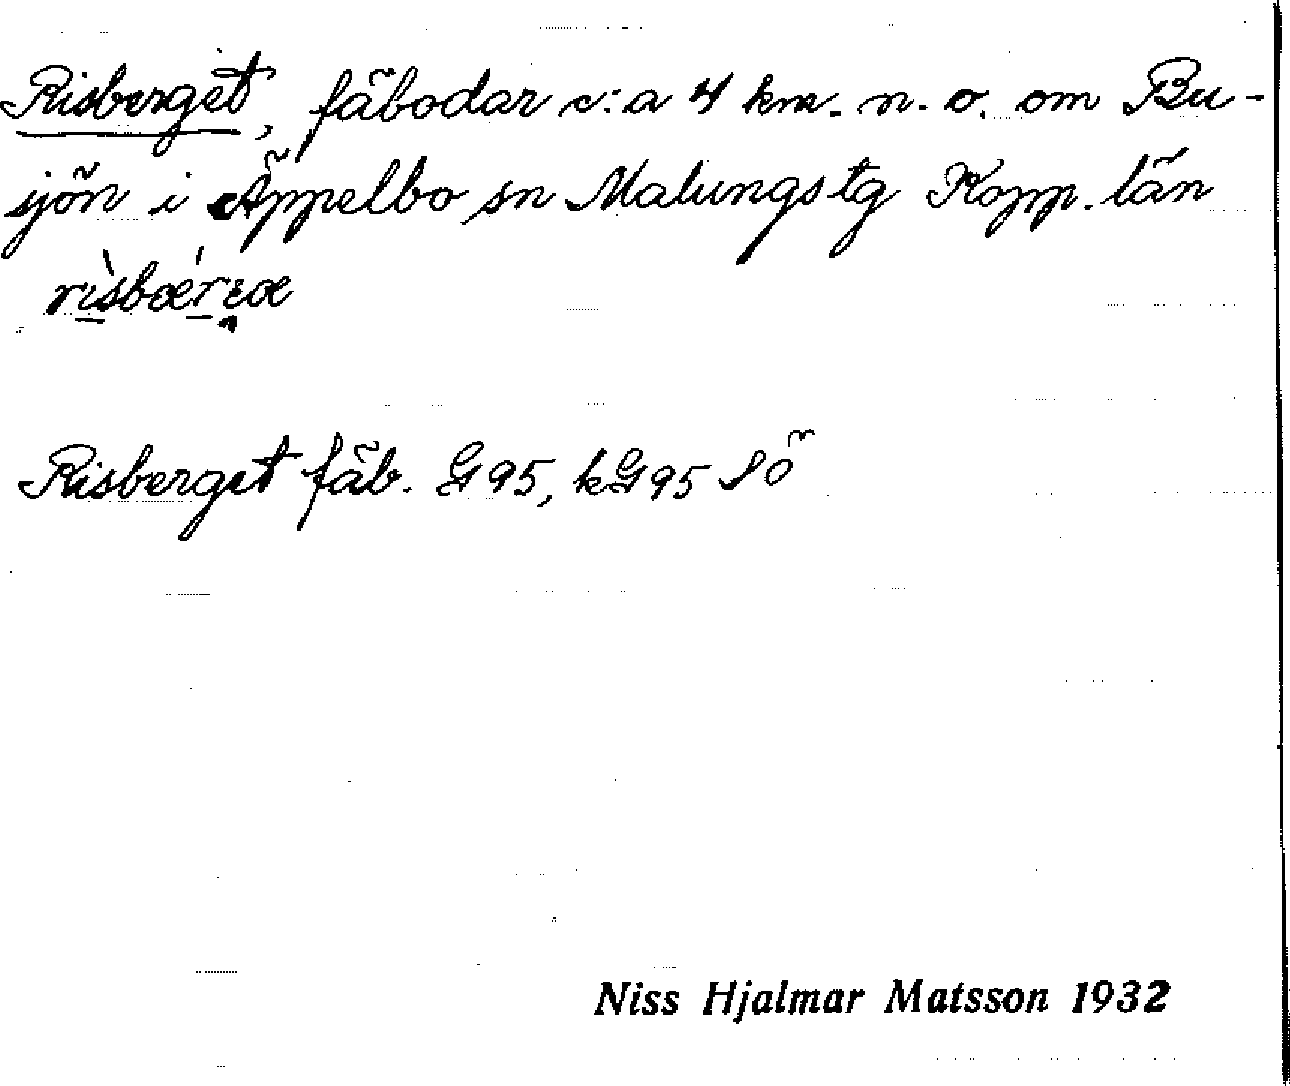 Risberget, fäbodar c:a 4 km. n. o. om Bu-
sjön i Äppelbo sn Malungs tg Kopp. län
Risberget fäb. G 95, kG95 SÖ
Niss Hjalmar Matsson 1932